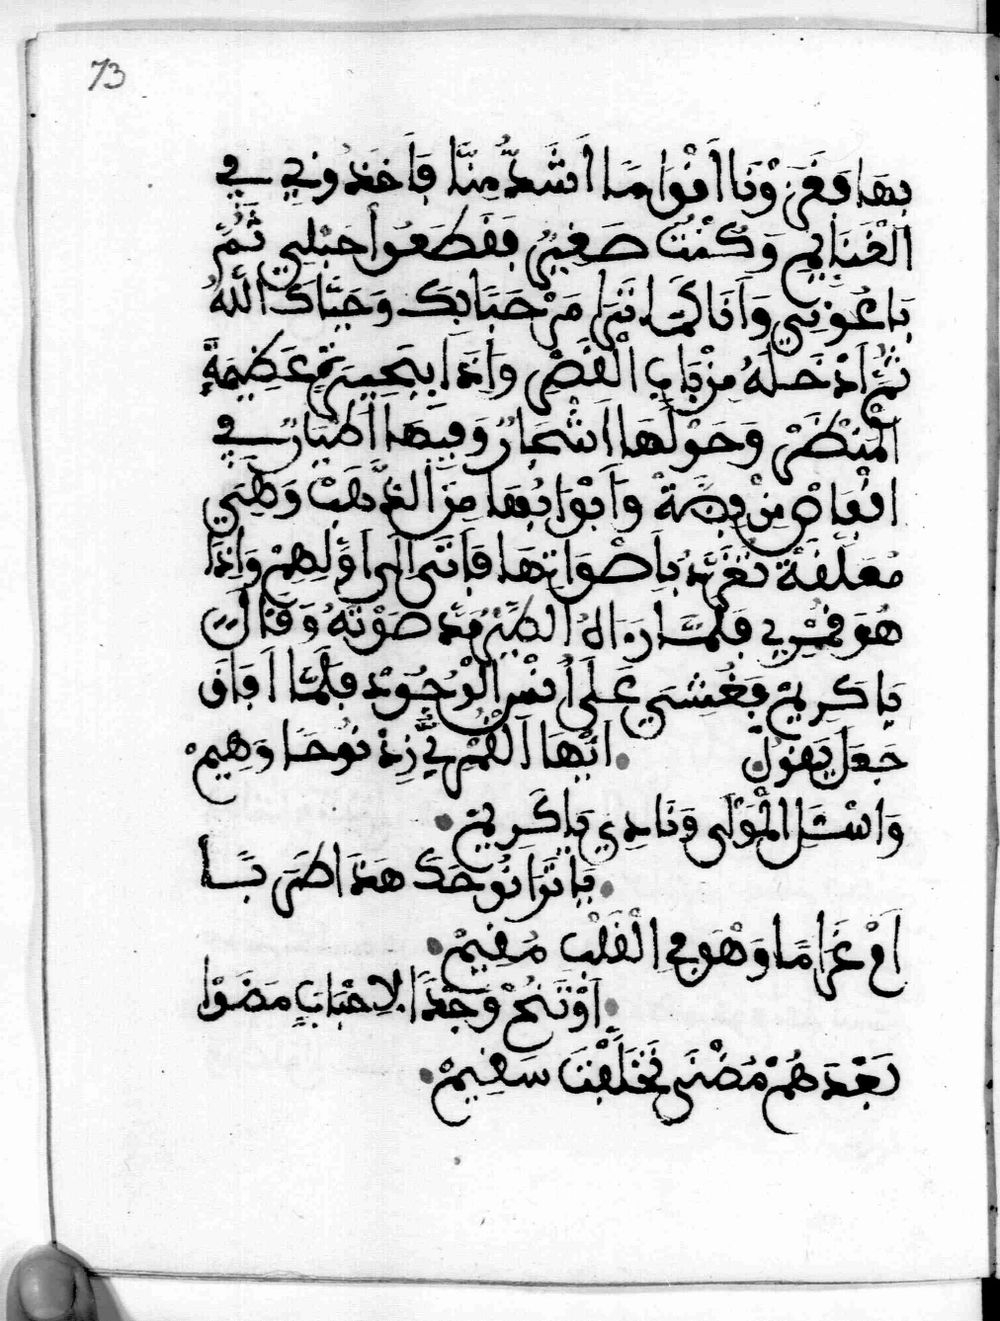 73
بها فغزونا اقواما اشد منا فاخذوني في
الغنايم وكنت صغير فقطعوا حبلي ثم
باعوني وانا كما ترا مرحبا بك وحياك الله
ثم ادخله من باب القصر واذا ببحيرة عظيمة
المنظر وحولها اشجار وفيها اطيار في
اقفاص من فضة وابوابها من الذهب وهي
معلقة تغرد باصواتها فاتى الى اولهم واذا
هو قمري فلما رواه الطير مد صوته وقال
يا كريم فغشي على انس الوجود فلما افاق
جعل يقول . ايها القمري زد نوحا وهيم
واسئل المولى ونادي يا كريم
يا ترا نوحك هذا طربا
ام غراما وهو في القلب مقيم
او تنح وجدا لاحباب مضوا
بعدهم مضنى تخلفت سقيم